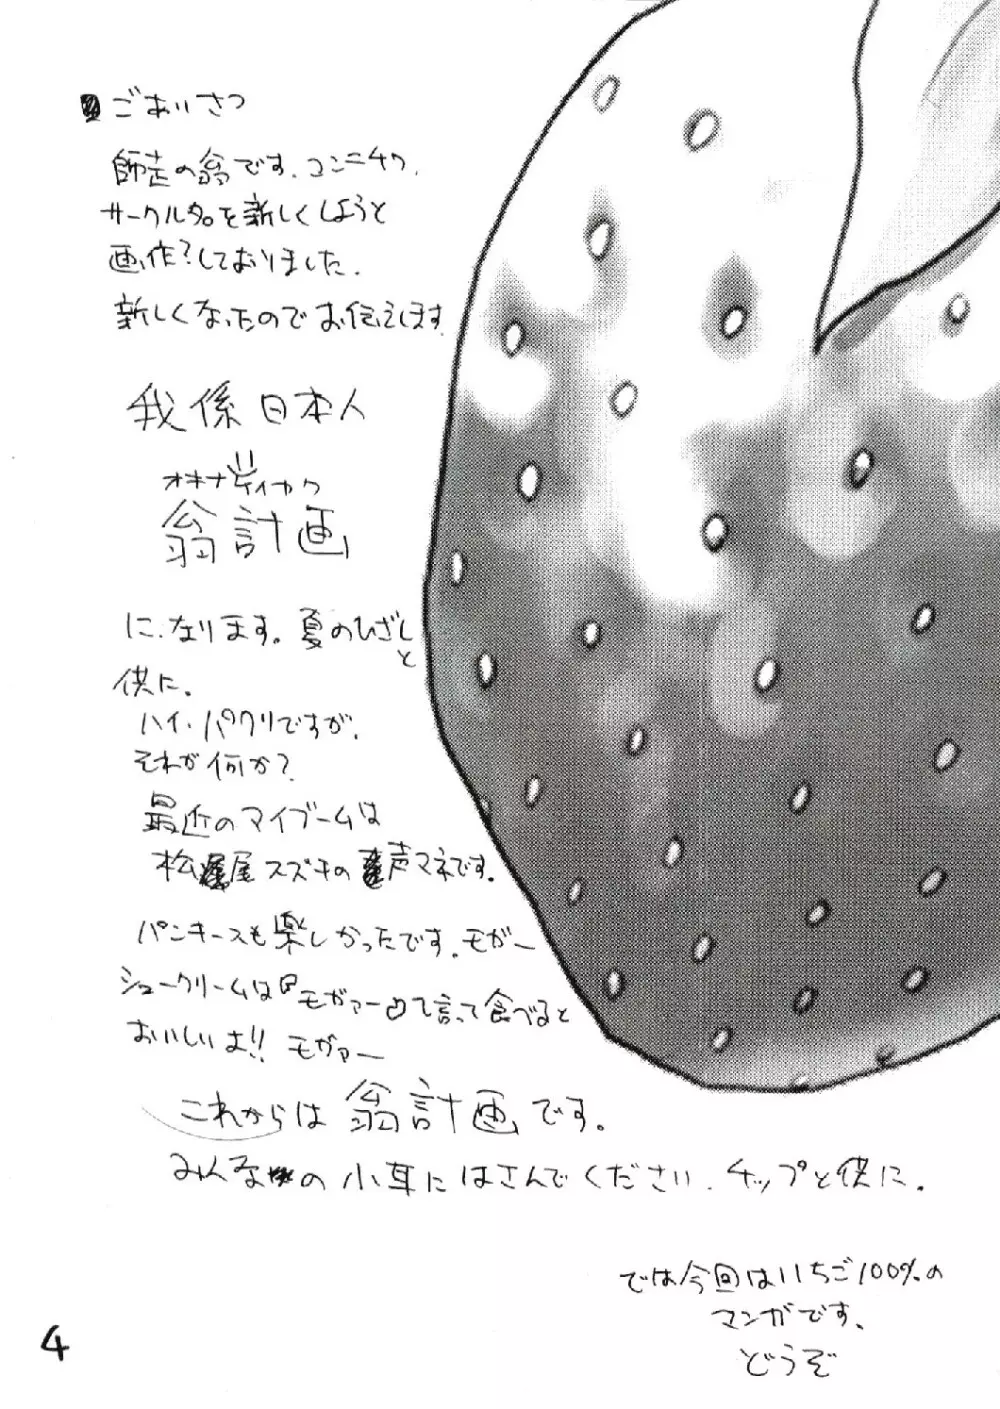 ごあいさつ
師走の翁です。コンニチワ。
サークル名を新しくしようと
画作?しておりました。
新しくなったのでお伝えします
我係日本人
オキナケイカク
翁計画
に、なります。夏のひざしと
供に。
ハイ・パクリですが、
それが何か?
最近のマイブームは
松尾スズキの声マネです。
パンキースも楽しかったです。モガー
シュークリームは『モガァー』て言って食べると
おいしいよ!! モガァー
これからは翁計画です。
みんなの小耳にはさんでください。チップと供に。
では今回はいちご100%の
マンガです。
どうぞ
4